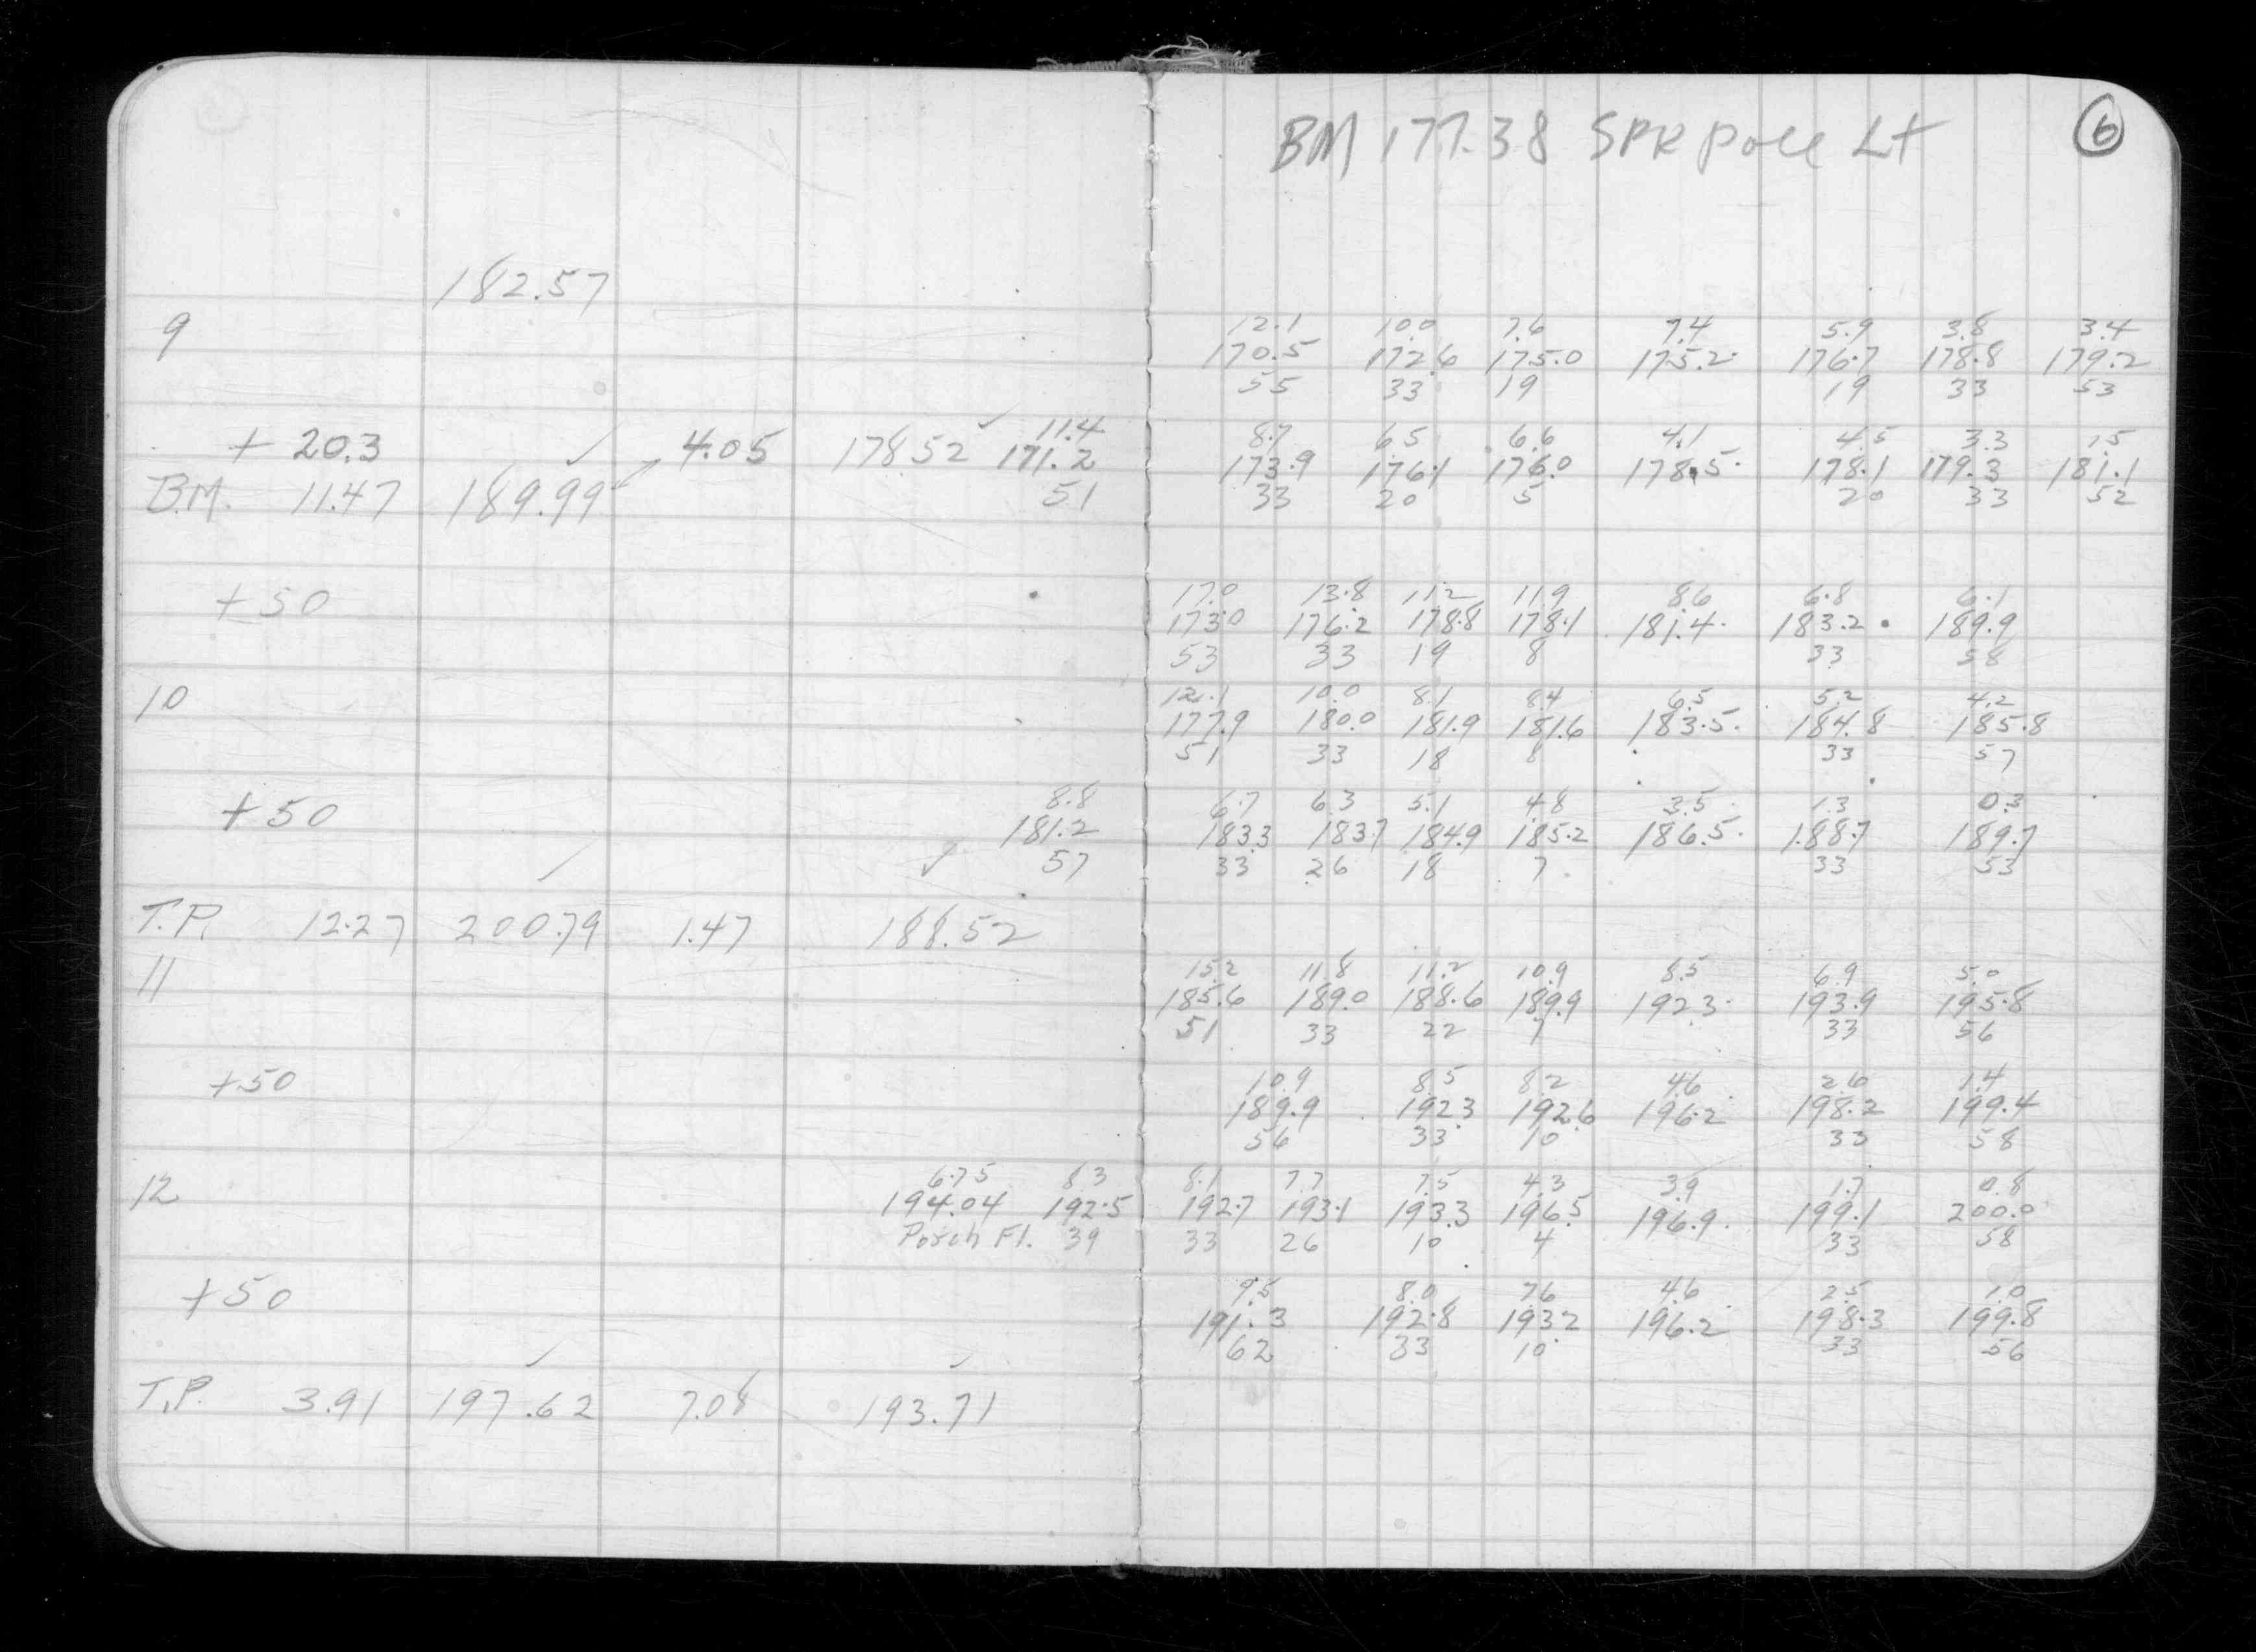 BM 177.38 SPK Pole Lt 6
182.57
9 12.1 10.0 7.6 7.4 5.9 3.8 3.4
170.5 172.6 175.0 175.2 176.7 178.8 179.2
55 33 19 19 33 53
+ 20.3 4.05 178.52 11.4 8.7 6.5 6.6 4.1 4.5 3.3 1.5
171.2 173.9 176.1 176.0 178.5 178.1 179.3 181.1
B.M. 11.47 189.99 51 33 20 5 20 33 52
+50 17.0 13.8 11.2 11.9 8.6 6.8 6.1
173.0 176.2 178.8 178.1 181.4 183.2 189.9
53 33 19 8 33 58
10 12.1 10.0 8.1 8.4 6.5 5.2 4.2
177.9 180.0 181.9 181.6 183.5 184.8 185.8
51 33 18 8 33 57
+50 8.8 6.7 6.3 5.1 4.8 3.5 1.3 0.3
181.2 183.3 183.7 184.9 185.2 186.5 188.7 189.7
57 33 26 18 7 33 53
T.P. 12.27 200.79 1.47 188.52
11 15.2 11.8 11.2 10.9 8.5 6.9 5.0
185.6 189.0 188.6 189.9 192.3 193.9 195.8
51 33 22 7 33 56
+50 10.9 8.5 8.2 4.6 2.6 1.4
189.9 192.3 192.6 196.2 198.2 199.4
56 33 10 33 58
12 6.75 8.3 8.1 7.7 7.5 4.3 3.9 1.7 0.8
194.04 192.5 192.7 193.1 193.3 196.5 196.9 199.1 200.0
Porch Fl. 39 33 26 10 4 33 58
+50 9.5 8.0 7.6 4.6 2.5 1.0
191.3 192.8 193.2 196.2 198.3 199.8
62 33 10 33 56
T.P. 3.91 197.62 7.08 193.71